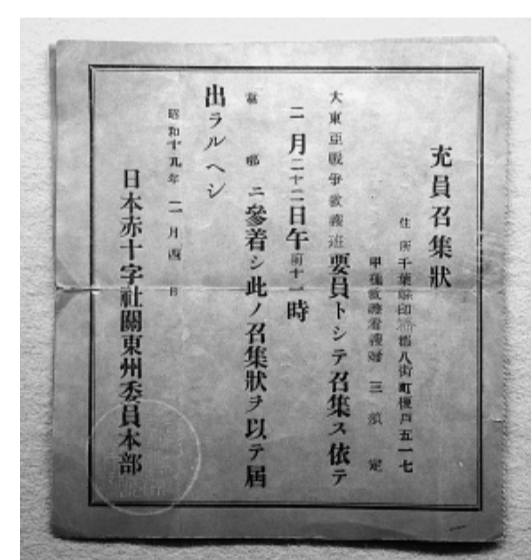 充員召集狀
住所千葉縣印旛郡八街町榎戸五一七
甲種救護看護婦 三須 定
大東亞戰爭救護班要員トシテ召集ス依テ
二月二十二日午前十一時
ニ參着シ此ノ召集狀ヲ以テ屆
出ラルヘシ
昭和十九年二月四日
日本赤十字社關東州委員本部